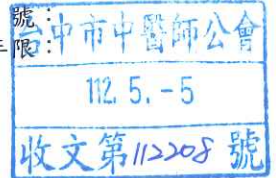 號：
年限：
台中市中醫師公會
112. 5. -5
收文第112208號